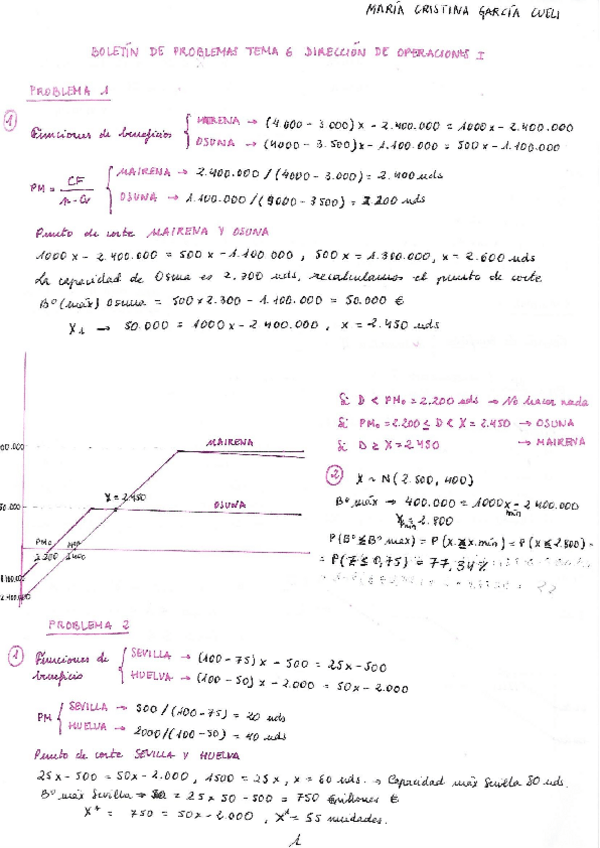 MARÍA CRISTINA GARCÍA CUELI
BOLETÍN DE PROBLEMAS TEMA 6 DIRECCIÓN DE OPERACIONES I
PROBLEMA 1
1 Funciones de beneficios
MAIRENA → (4000 - 3.000)x - 2.400.000 = 1000x - 2.400.000
OSUNA → (4000 - 3.500)x - 1.100.000 = 500x - 1.100.000
PM = CF / n - Cv
MAIRENA → 2.400.000 / (4000 - 3.000) = 2.400 uds
OSUNA → 1.100.000 / (4000 - 3500) = 2.200 uds
Punto de corte MAIRENA Y OSUNA
1000x - 2.400.000 = 500x - 1.100.000 , 500x = 1.300.000, x = 2.600 uds
La capacidad de Osuna es 2.300 uds, recalculamos el punto de corte
Bº (máx) Osuna = 500x2.300 - 1.100.000 = 50.000 €
X₁ → 50.000 = 1000x - 2.400.000 , x = 2.450 uds
Si D < PM₀ = 2.200 uds → No hacer nada
Si PM₀ = 2.200 ≤ D < X = 2.450 → OSUNA
Si D ≥ X = 2.450 → MAIRENA
00.000
MAIRENA
X = 2.450
50.000
OSUNA
PM₀
2.200
2400
2.400.000
2 X ~ N(2.500, 400)
Bº máx → 400.000 = 1000x - 2.400.000
Xmín = 2.800
P(Bº ≤ Bº max) = P(x ≤ x.mín) = P(X ≤ 2.800) -
= P(Z ≤ 0,75) = 77,34%
PROBLEMA 2
1 Funciones de beneficio
SEVILLA → (100 - 75)x - 500 = 25x - 500
HUELVA → (100 - 50)x - 2.000 = 50x - 2.000
PM
SEVILLA → 500 / (100 - 75) = 20 uds
HUELVA → 2000 / (100 - 50) = 40 uds
Punto de corte SEVILLA Y HUELVA
25x - 500 = 50x - 2.000 , 1500 = 25x , x = 60 uds. → Capacidad máx Sevilla 50 uds.
Bº máx Sevilla → = 25 x 50 - 500 = 750 millones €
X* = 750 = 50x - 2.000 , X* = 55 unidades.
1